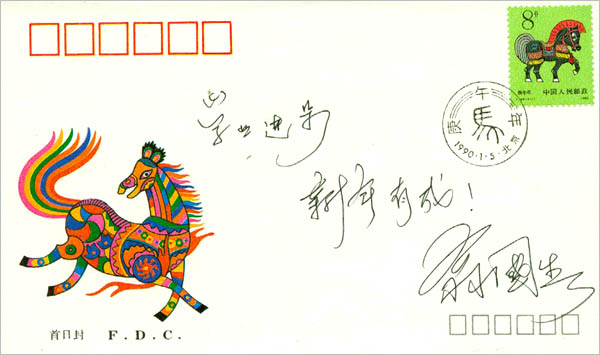 8分
庚午年
中国人民邮政
庚午年
馬
1990·1·5·北京
学业进步
新年有成!
首日封 F.D.C.